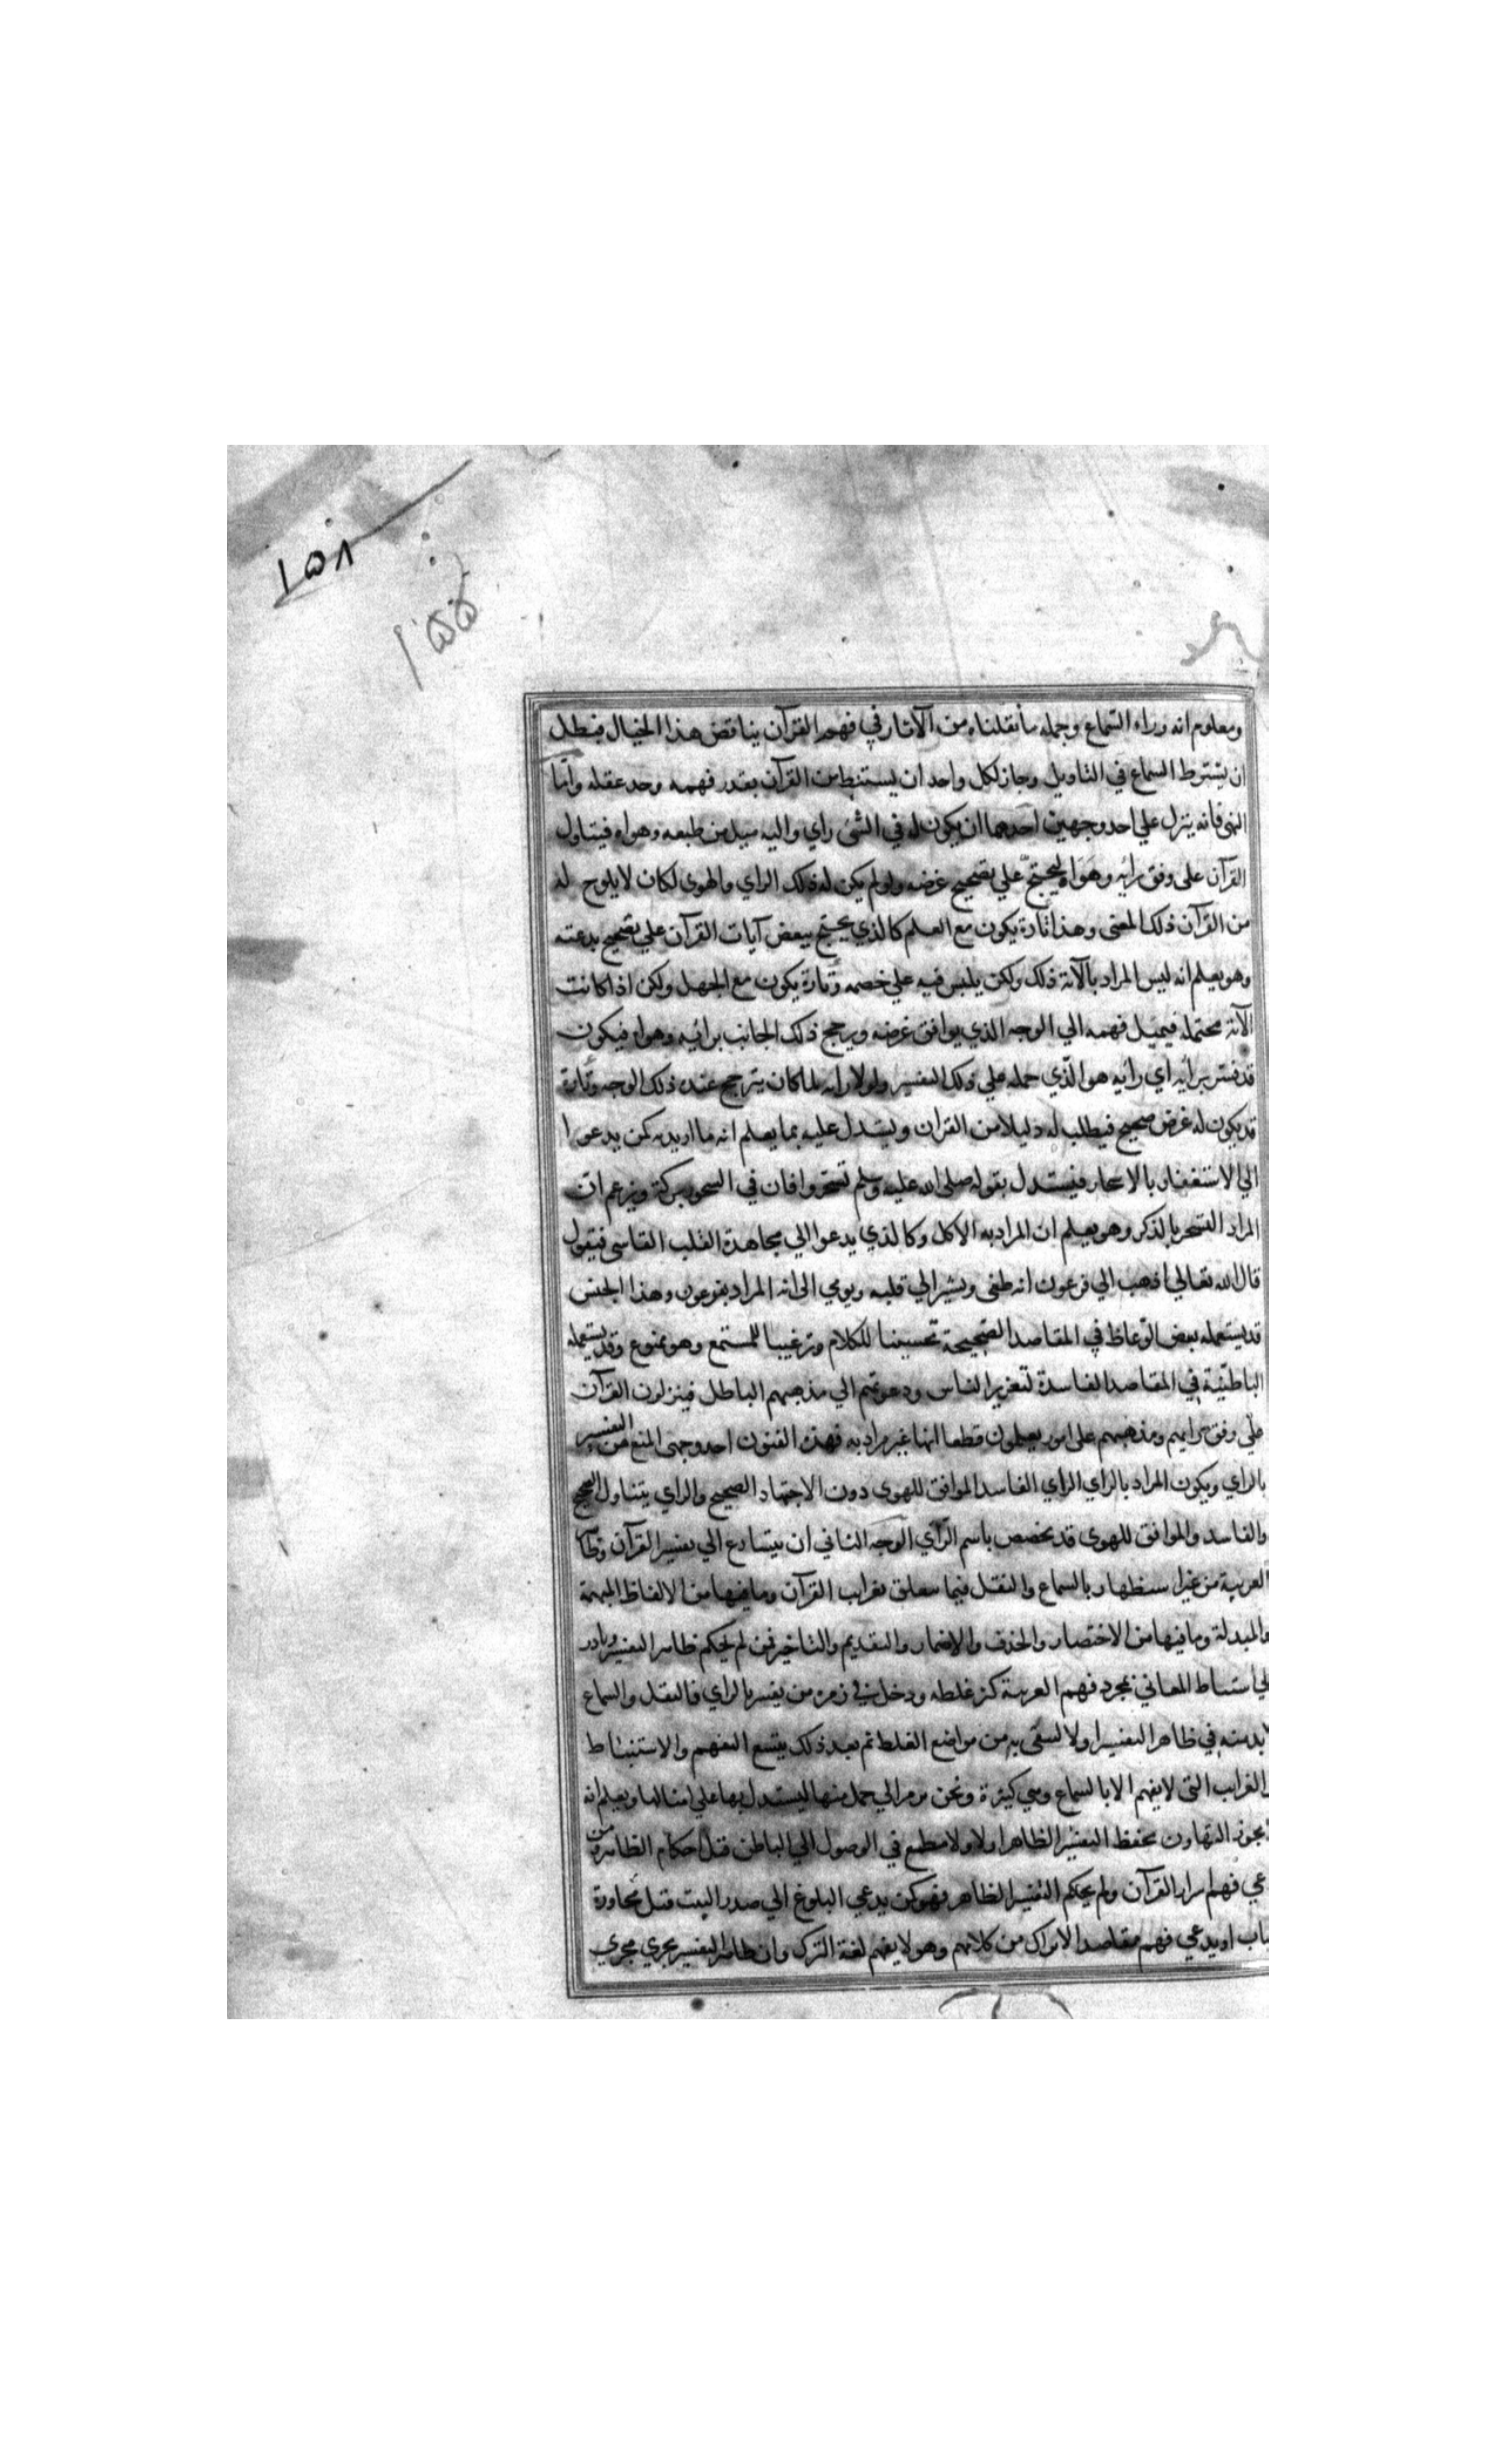 ١٥٨
١٥٥
ومعلوم انه وراء السماع وجمله ما نقلناه من الآثار في فهم القرآن يناقض هذا الخيال فبطل
ان يشترط السماع في التاويل وجاز لكل واحد ان يستنبط من القرآن بقدر فهمه وحد عقله وامّا
النهى فانه ينزل علي احد وجهين احدهما ان يكون له في الشئ راي واليه ميل من طبعه وهواه فيتاول
القرآن على وفق رائه وهواه ليحتجّ علي تصحيح غرضه ولو لم يكن له ذلك الراي والهوى لكان لا يلوح له
من القرآن ذلك المعنى وهذا تارة يكون مع العلم كالذي يحتج ببعض آيات القرآن علي تصحيح بدعته
وهو يعلم انه ليس المراد بالآية ذلك ولكن يلبس فيه علي خصمه وتارة يكون مع الجهل ولكن اذا كانت
الآية محتمله فيميل فهمه الي الوجه الذي يوافق غرضه ويرجح ذلك الجانب برائيه وهواه فيكون
قد فسّر برائيه اي رائيه هو الّذي حمله علي ذلك التفسير ولولا رايه لما كان يترجح عنده ذلك الوجه وتارة
قد يكون له غرض صحيح فيطلب له دليلا من القران ويستدل عليه بما يعلم انه ما اريد به كمن يدعوا
الي الاستغفار بالاسحار فيستدل بقوله صلى الله عليه وسلم تسحّروا فان في السحور بركة ويزعم انّ
المراد التسحر بالذكر وهو يعلم ان المراد به الاكل وكالذي يدعوا الي مجاهدة القلب القاسى فيقول
قال الله تعالي اذهب الي فرعون انه طغى ويشير الي قلبه ويومي الى انه المراد بفرعون وهذا الجنس
قد يستعمله بعض الوّعاظ في المقاصد الصّحيحة تحسينا للكلام وترغيبا للمستمع وهو ممنوع وقد يستعمله
الباطنّية في المقاصد الفاسدة لتغرير الناس ودعوتهم الي مذهبهم الباطل فينزلون القرآن
علي وفق رايهم ومذهبهم على امور يعلمون قطعا انها غير مراد به فهذه الفنون احد وجهى المنع من التفسير
بالراي ويكون المراد بالراي الراي الفاسد الموافق للهوى دون الاجتهاد الصحيح والراي يتناول الصحيح
والفاسد والموافق للهوى قد يخصص باسم الرّاي الوجه الثاني ان يتسارع الي تفسير القرآن بظاهر
العربية من غير استظهار بالسماع والنقل فيما يتعلق بغرايب القرآن وما فيها من الالفاظ المبهمة
والمبدلة وما فيها من الاختصار والحذف والاضمار والتقديم والتاخير فمن لم يحكم ظاهر التفسير وبادر
لي استنباط المعاني بمجرد فهم العربية كثر غلطه ودخل في زمره من يفسر بالراي فالنقل والسماع
لابد منه في ظاهر التفسير اولا ليتقى به من مواضع الغلط ثم بعد ذلك يتسع التفهم والاستنباط
والغرايب التى لا يفهم الا بالسماع وهي كثيرة ونحن نرمز الي جمل منها ليستدل بها علي امثالها ويعلم انه
يجوز التهاون بحفظ التفسير الظاهر اولا ولا مطمع في الوصول الي الباطن قبل احكام الظاهر ومن
عي فهم اسرار القرآن ولم يحكم التفسير الظاهر فهو كمن يدعي البلوغ الي صدر البيت قبل مجاوزة
باب او يدعي فهم مقاصد الاتراك من كلامهم وهو لا يفهم لغة الترك وان ظاهر التفسير يجري مجري